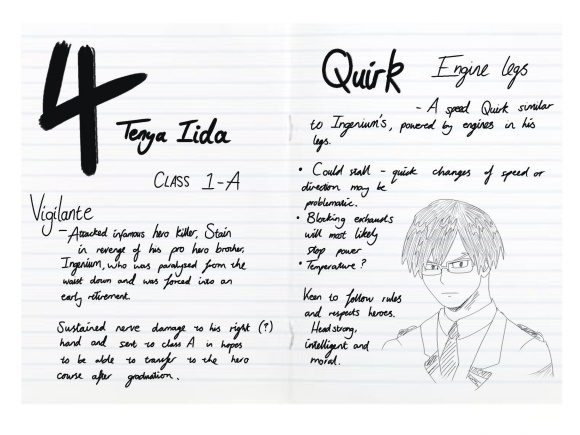 4
Tenya Iida
CLASS 1-A
Vigilante
- Attacked infamous hero killer, Stain
in revenge of his pro hero brother,
Ingenium, who was paralysed from the
waist down and was forced into an
early retirement.
Sustained nerve damage to his right (?)
hand and sent to class A in hopes
to be able to transfer to the hero
course after graduation.
Quirk Engine legs
- A speed Quirk similar
to Ingenium's, powered by engines in his
legs.
• Could stall - quick changes of speed or
direction may be
problematic.
• Blocking exhausts
will most likely
stop power
• Temperature?
Keen to follow rules
and respects heroes.
Headstrong,
intelligent and
moral.